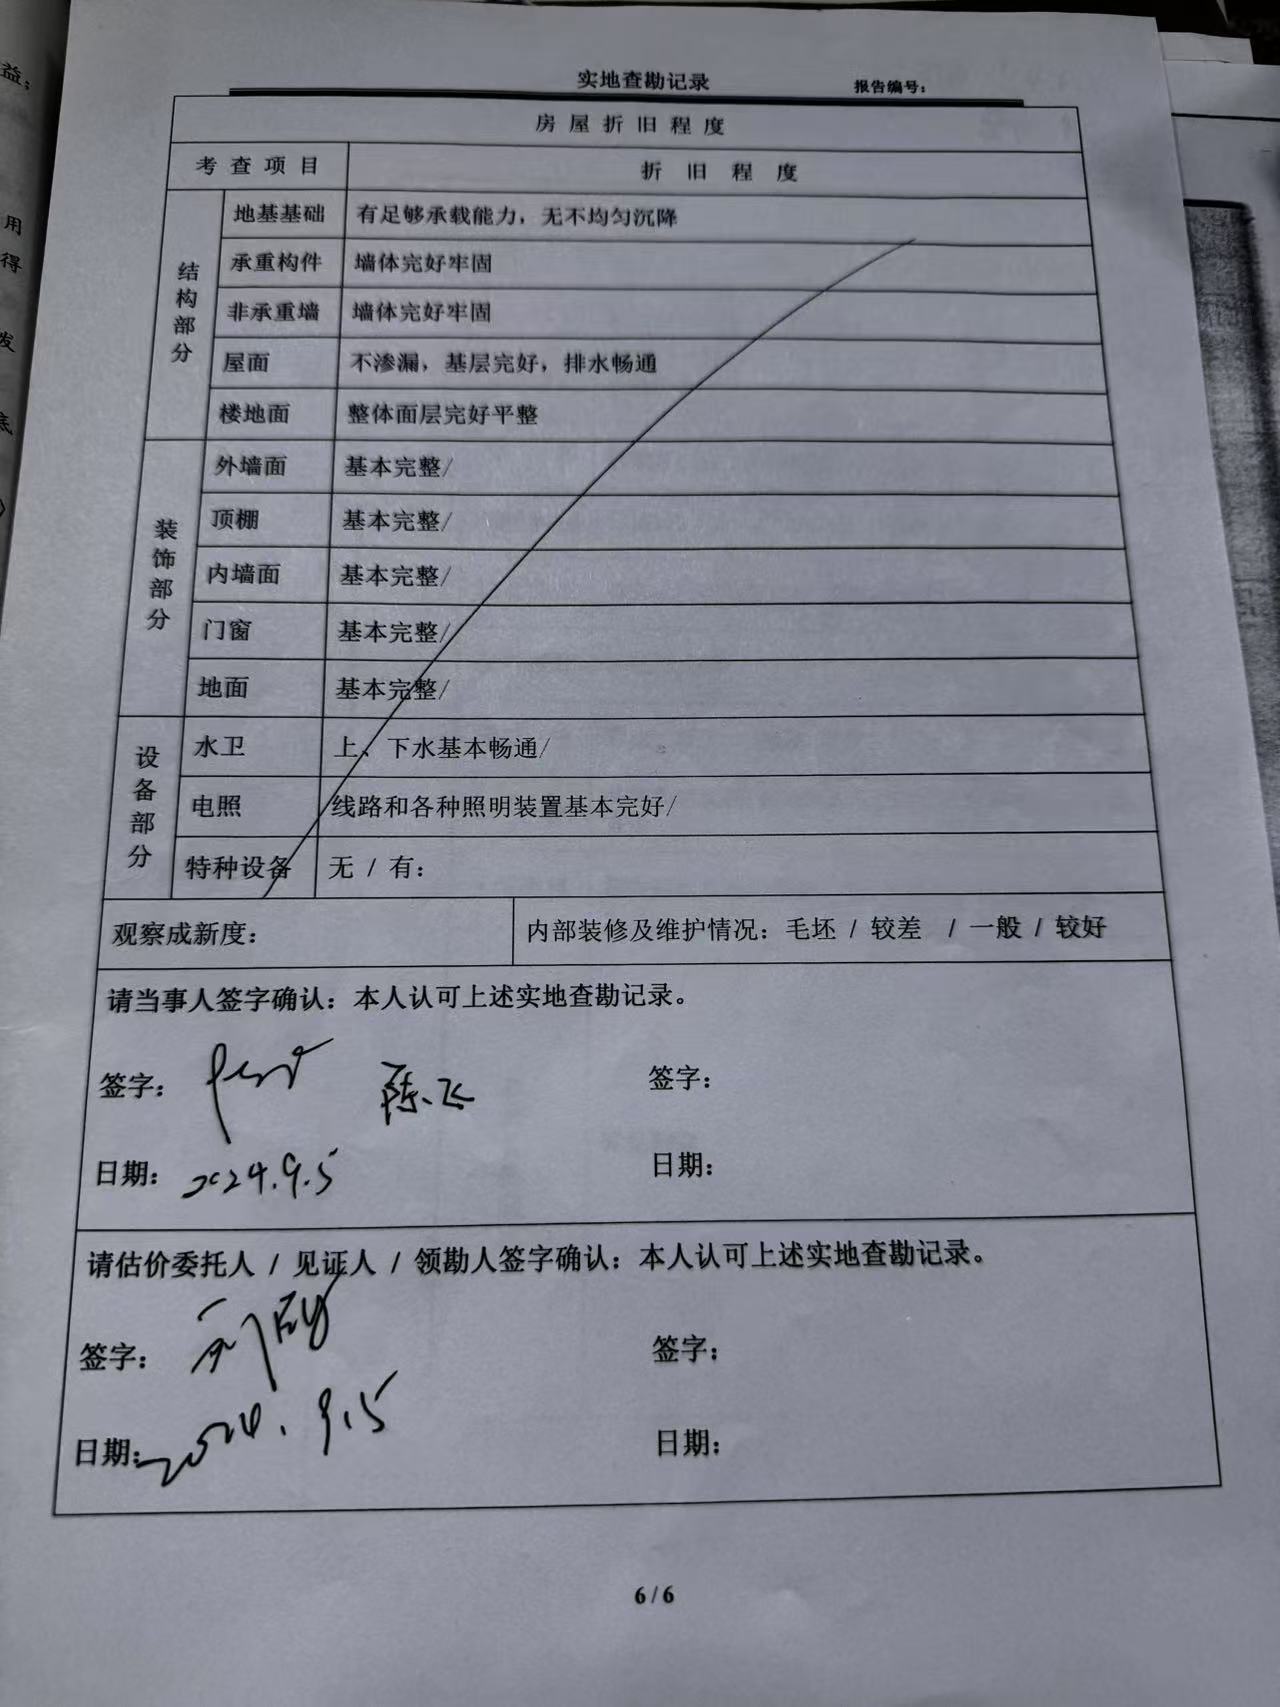 益；
用
得
发
底
实地查勘记录 报告编号：
房屋折旧程度
考查项目 折旧程度
结构部分
地基基础 有足够承载能力，无不均匀沉降
承重构件 墙体完好牢固
非承重墙 墙体完好牢固
屋面 不渗漏，基层完好，排水畅通
楼地面 整体面层完好平整
装饰部分
外墙面 基本完整/
顶棚 基本完整/
内墙面 基本完整/
门窗 基本完整/
地面 基本完整/
设备部分
水卫 上、下水基本畅通/
电照 线路和各种照明装置基本完好/
特种设备 无 / 有：
观察成新度： 内部装修及维护情况：毛坯 / 较差 / 一般 / 较好
请当事人签字确认：本人认可上述实地查勘记录。
签字： 陈飞 签字：
日期：2024.9.5 日期：
请估价委托人 / 见证人 / 领勘人签字确认：本人认可上述实地查勘记录。
签字： 签字：
日期：2024.9.5 日期：
6 / 6